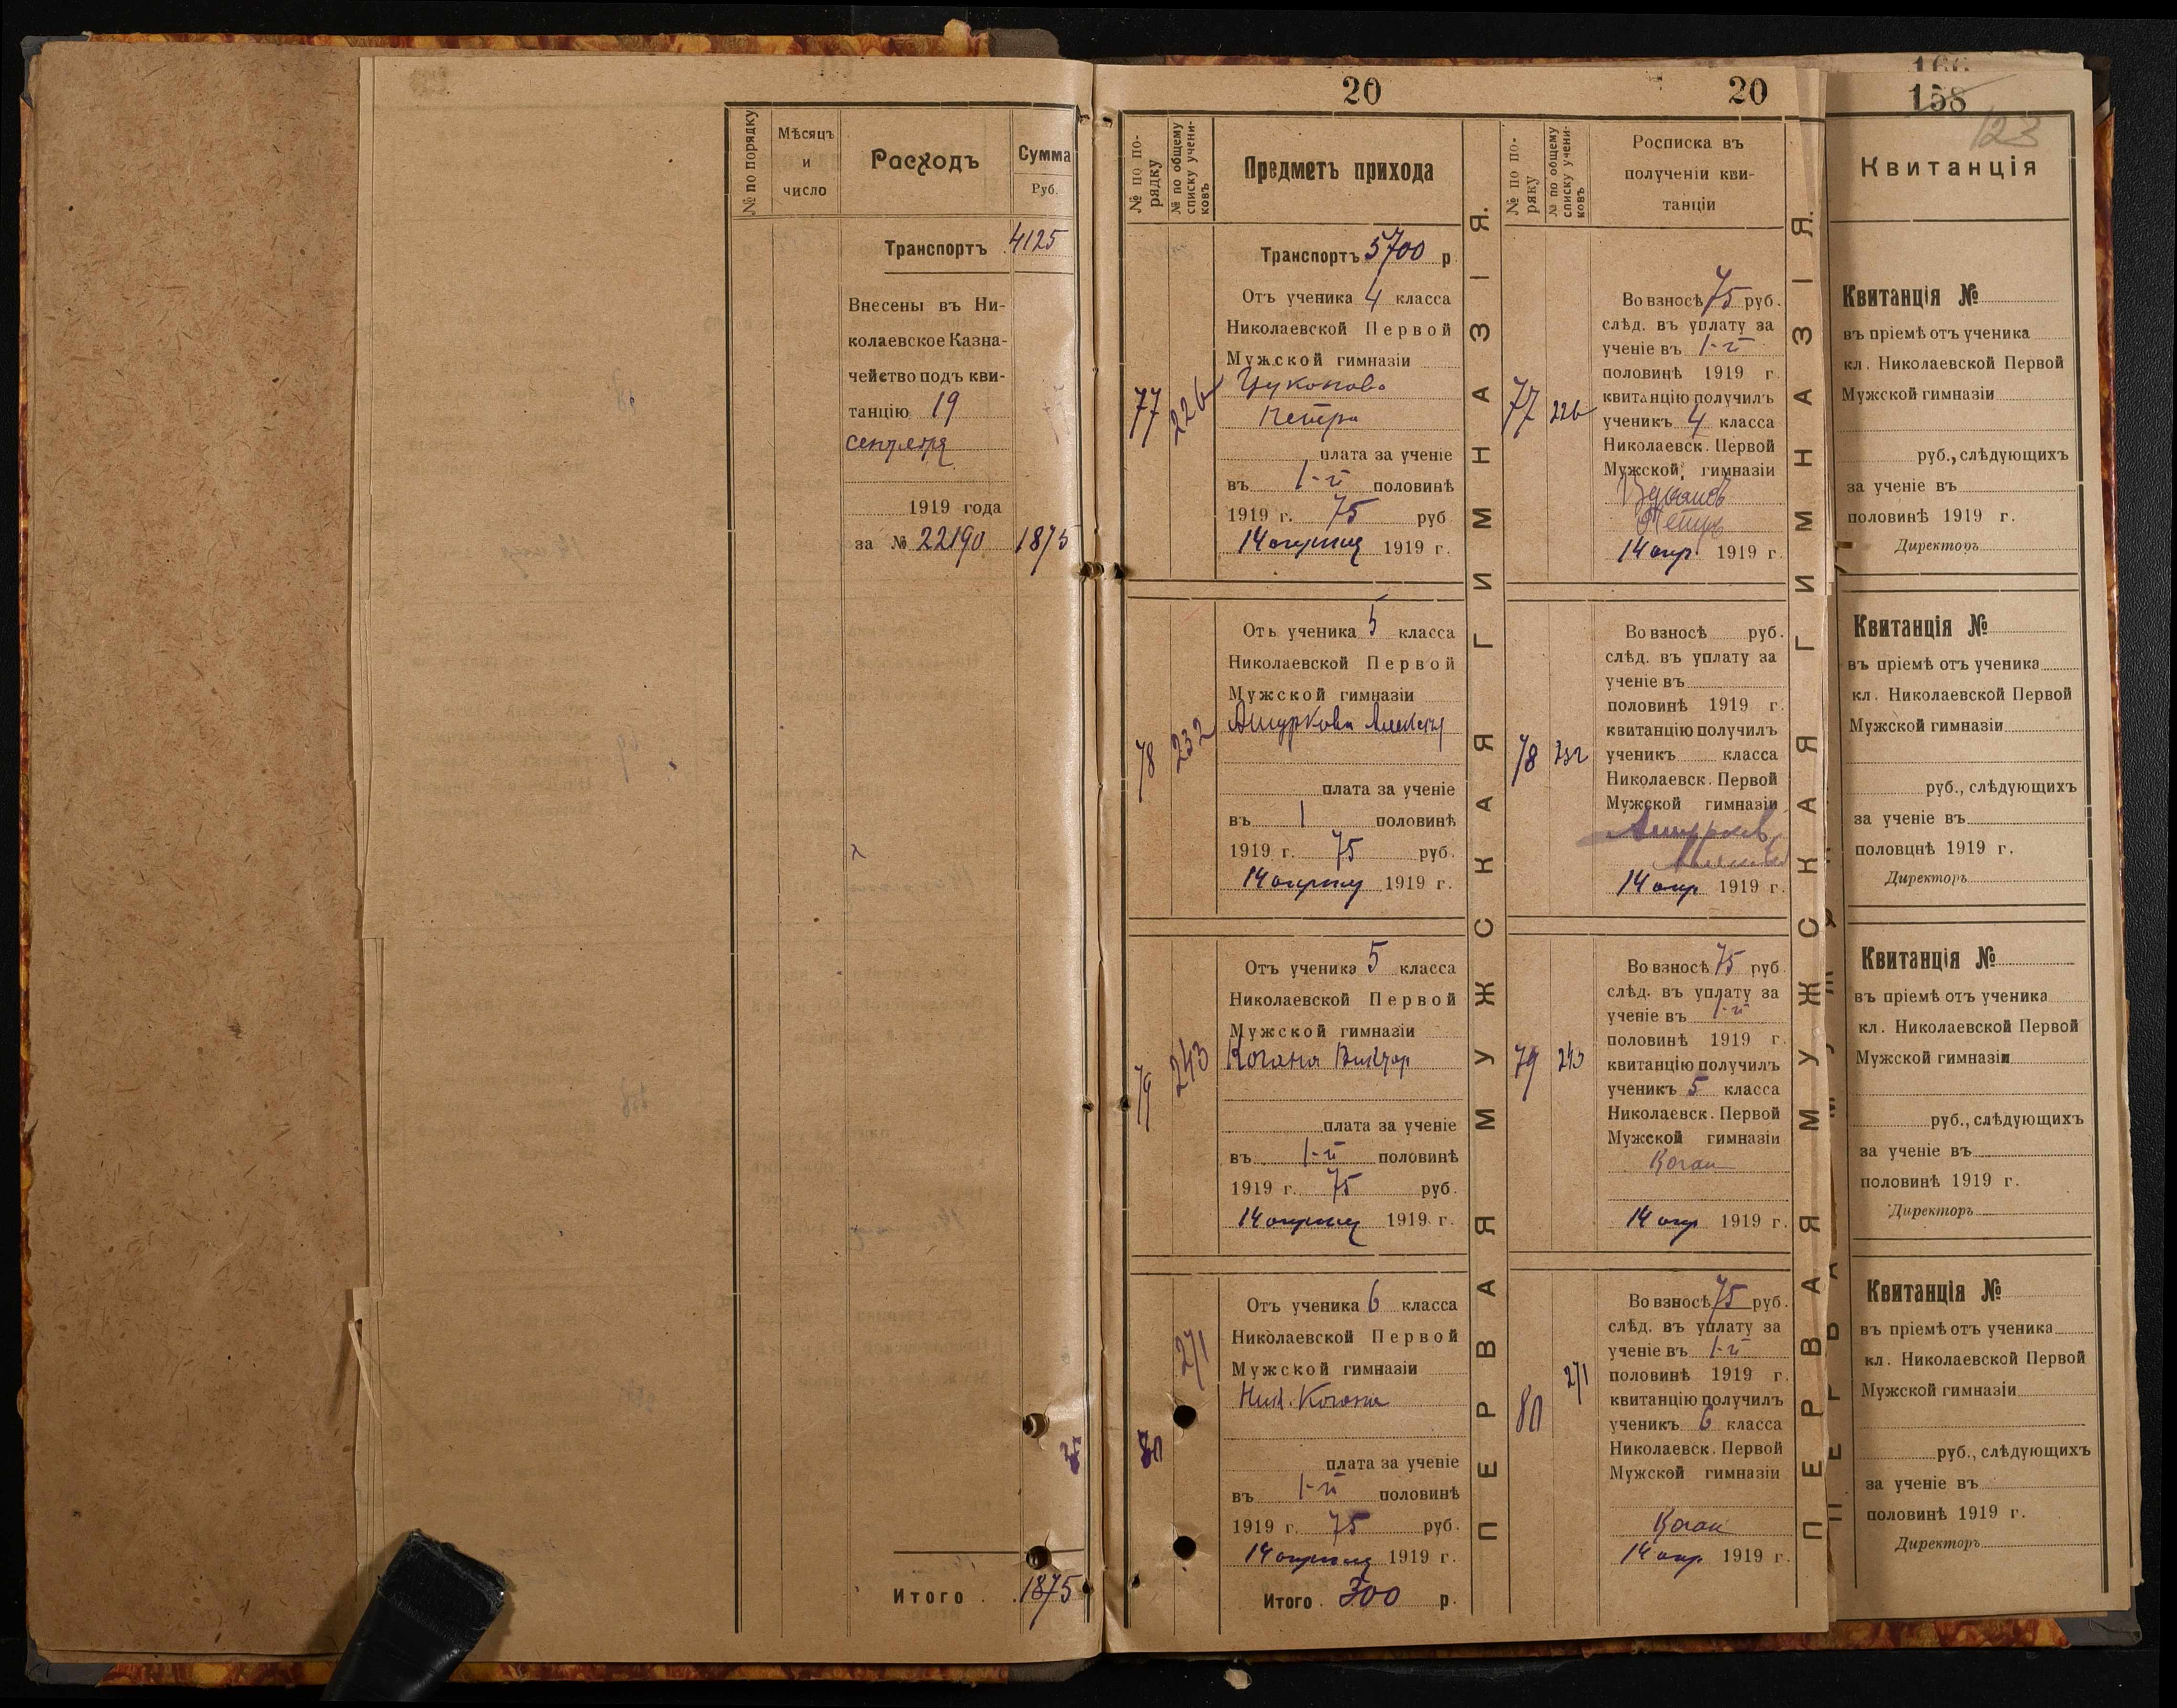 № по порядку
Мѣсяцъ
и
число
Расходъ
Сумма
Руб.
Транспортъ 4125
Внесены въ Ни-
колаевское Казна-
чейство подъ кви-
танцію 19
1919 года
за № 22190 1875
Итого 1875
20
№ по по-
рядку
№ по общему
списку учени-
ковъ
Предметъ прихода
Транспортъ 5700 р.
77
226
Отъ ученика 4 класса
Николаевской Первой
Мужской гимназіи
Петра
плата за ученіе
въ 1-й половинѣ
1919 г. 75 руб
14 апрѣля 1919 г.
78
232
Отъ ученика 5 класса
Николаевской Первой
Мужской гимназіи
Ашуркова Алексѣя
плата за ученіе
въ 1 половинѣ
1919 г. 75 руб.
14 апрѣля 1919 г.
79
243
Отъ ученика 5 класса
Николаевской Первой
Мужской гимназіи
Когана Виктор
плата за ученіе
въ 1-й половинѣ
1919 г. 75 руб.
14 апрѣля 1919 г.
80
271
Отъ ученика 6 класса
Николаевской Первой
Мужской гимназіи
Ник. Когана
плата за ученіе
въ 1-й половинѣ
1919 г. 75 руб.
14 апрѣля 1919 г.
Итого 300 р.
ПЕРВАЯ МУЖСКАЯ ГИМНАЗІЯ.
20
№ по по-
ряку
№ по общему
списку учени-
ковъ
Росписка въ
полученіи кви-
танціи
77
226
Во взносѣ 75 руб.
слѣд. въ уплату за
ученіе въ 1-й
половинѣ 1919 г.
квитанцію получилъ
ученикъ 4 класса
Николаевск. Первой
Мужской гимназіи
Петръ
14 апр. 1919 г.
78
232
Во взносѣ руб.
слѣд. въ уплату за
ученіе въ
половинѣ 1919 г.
квитанцію получилъ
ученикъ класса
Николаевск. Первой
Мужской гимназіи
Ашурковъ
14 апр 1919 г.
79
243
Во взносѣ 75 руб
слѣд. въ уплату за
ученіе въ 1-й
половинѣ 1919 г.
квитанцію получилъ
ученикъ 5 класса
Николаевск. Первой
Мужской гимназіи
Коган
14 апр 1919 г.
80
271
Во взносѣ 75 руб.
слѣд. въ уплату за
ученіе въ 1-й
половинѣ 1919 г.
квитанцію получилъ
ученикъ 6 класса
Николаевск. Первой
Мужской гимназіи
Коган
14 апр. 1919 г.
ПЕРВАЯ МУЖСКАЯ ГИМНАЗІЯ.
158
123
Квитанція
Квитанція №
въ пріемѣ отъ ученика
кл. Николаевской Первой
Мужской гимназіи
руб., слѣдующихъ
за ученіе въ
половинѣ 1919 г.
Директоръ
Квитанція №
въ пріемѣ отъ ученика
кл. Николаевской Первой
Мужской гимназіи
руб., слѣдующихъ
за ученіе въ
половцнѣ 1919 г.
Директоръ
Квитанція №
въ пріемѣ отъ ученика
кл. Николаевской Первой
Мужской гимназіи
руб., слѣдующихъ
за ученіе въ
половинѣ 1919 г.
Директоръ
Квитанція №
въ пріемѣ отъ ученика
кл. Николаевской Первой
Мужской гимназіи
руб., слѣдующихъ
за ученіе въ
половинѣ 1919 г.
Директоръ